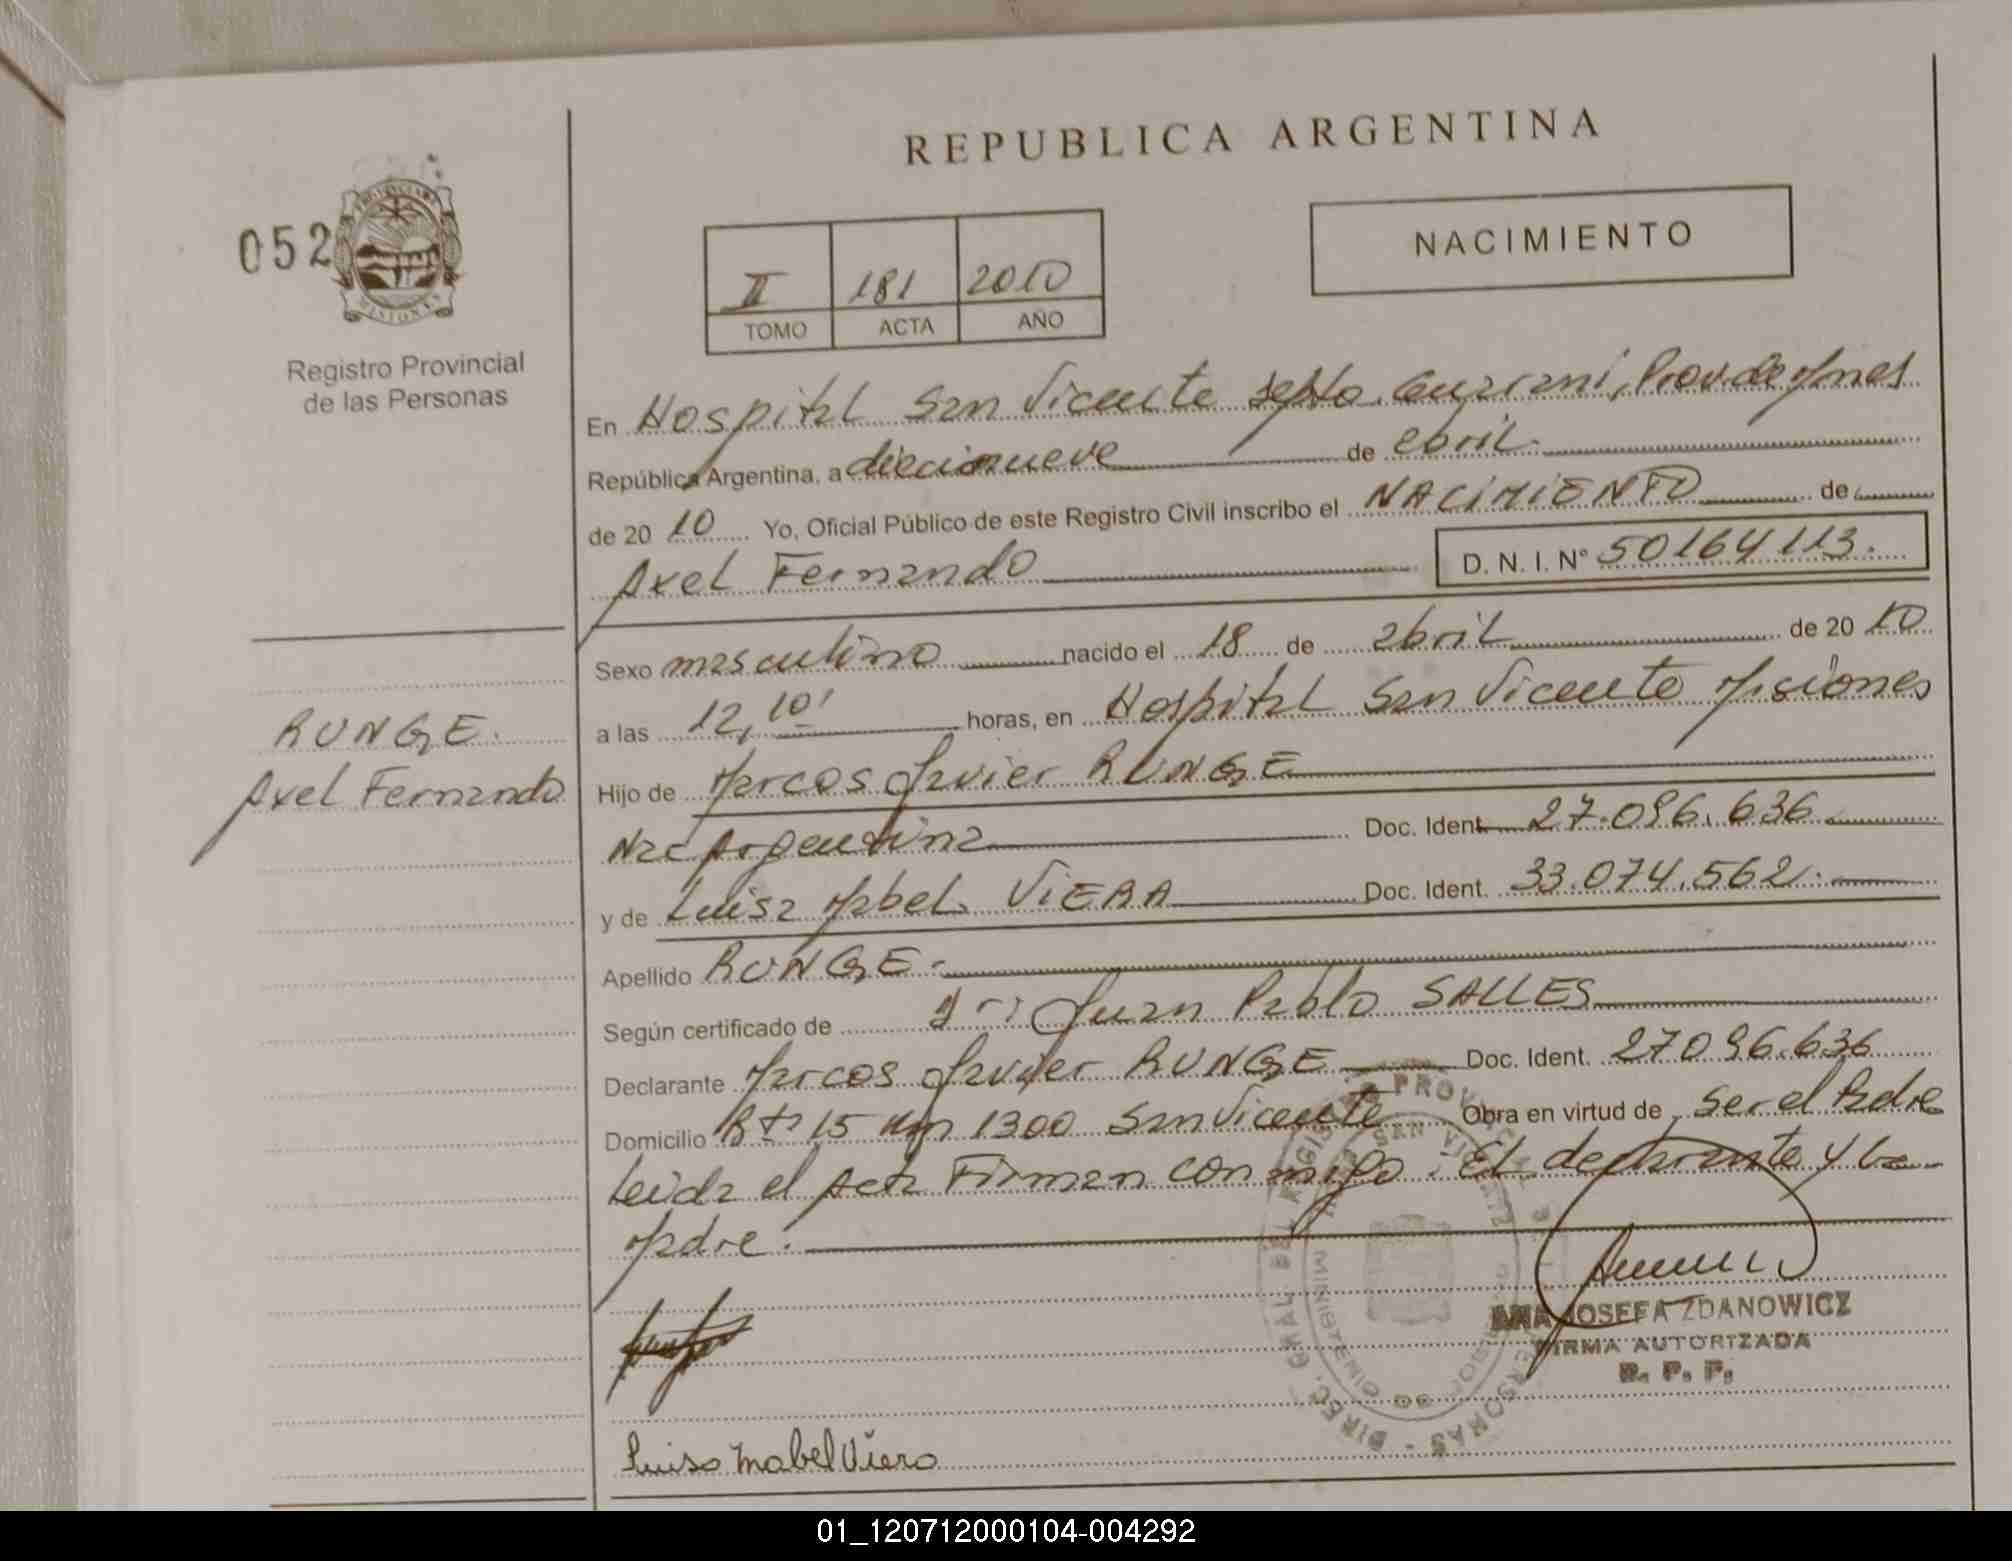 REPUBLICA ARGENTINA
052
PROVINCIA DE
MISIONES
Registro Provincial
de las Personas
NACIMIENTO
II 181 2010
TOMO ACTA AÑO
En Hospital San Vicente Depto. Guarani, Prov de Mnes
República Argentina, a diecinueve de abril.
de 20 10 Yo, Oficial Público de este Registro Civil inscribo el NACIMIENTO de
Axel Fernando D. N. I. N° 50164113.
Sexo masculino nacido el 18 de abril de 20 10
a las 12,10' horas, en Hospital San Vicente Misiones
RUNGE.
Axel Fernando
Hijo de Marcos Javier RUNGE
Nac Argentina Doc. Ident. 27.096.636
y de Luisa Mabel VIERA Doc. Ident. 33.074.562.
Apellido RUNGE.
Según certificado de Juan Pablo SALLES
Declarante Marcos Javier RUNGE Doc. Ident. 27096.636
Domicilio Rta 15 Km 1300 San Vicente Obra en virtud de ser el Padre
Leida el Acta Firman conmigo. El declarante y la
Madre.
ANA JOSEFA ZDANOWICZ
FIRMA AUTORIZADA
R. P. P.
Luisa Mabel Viera
01_120712000104-004292